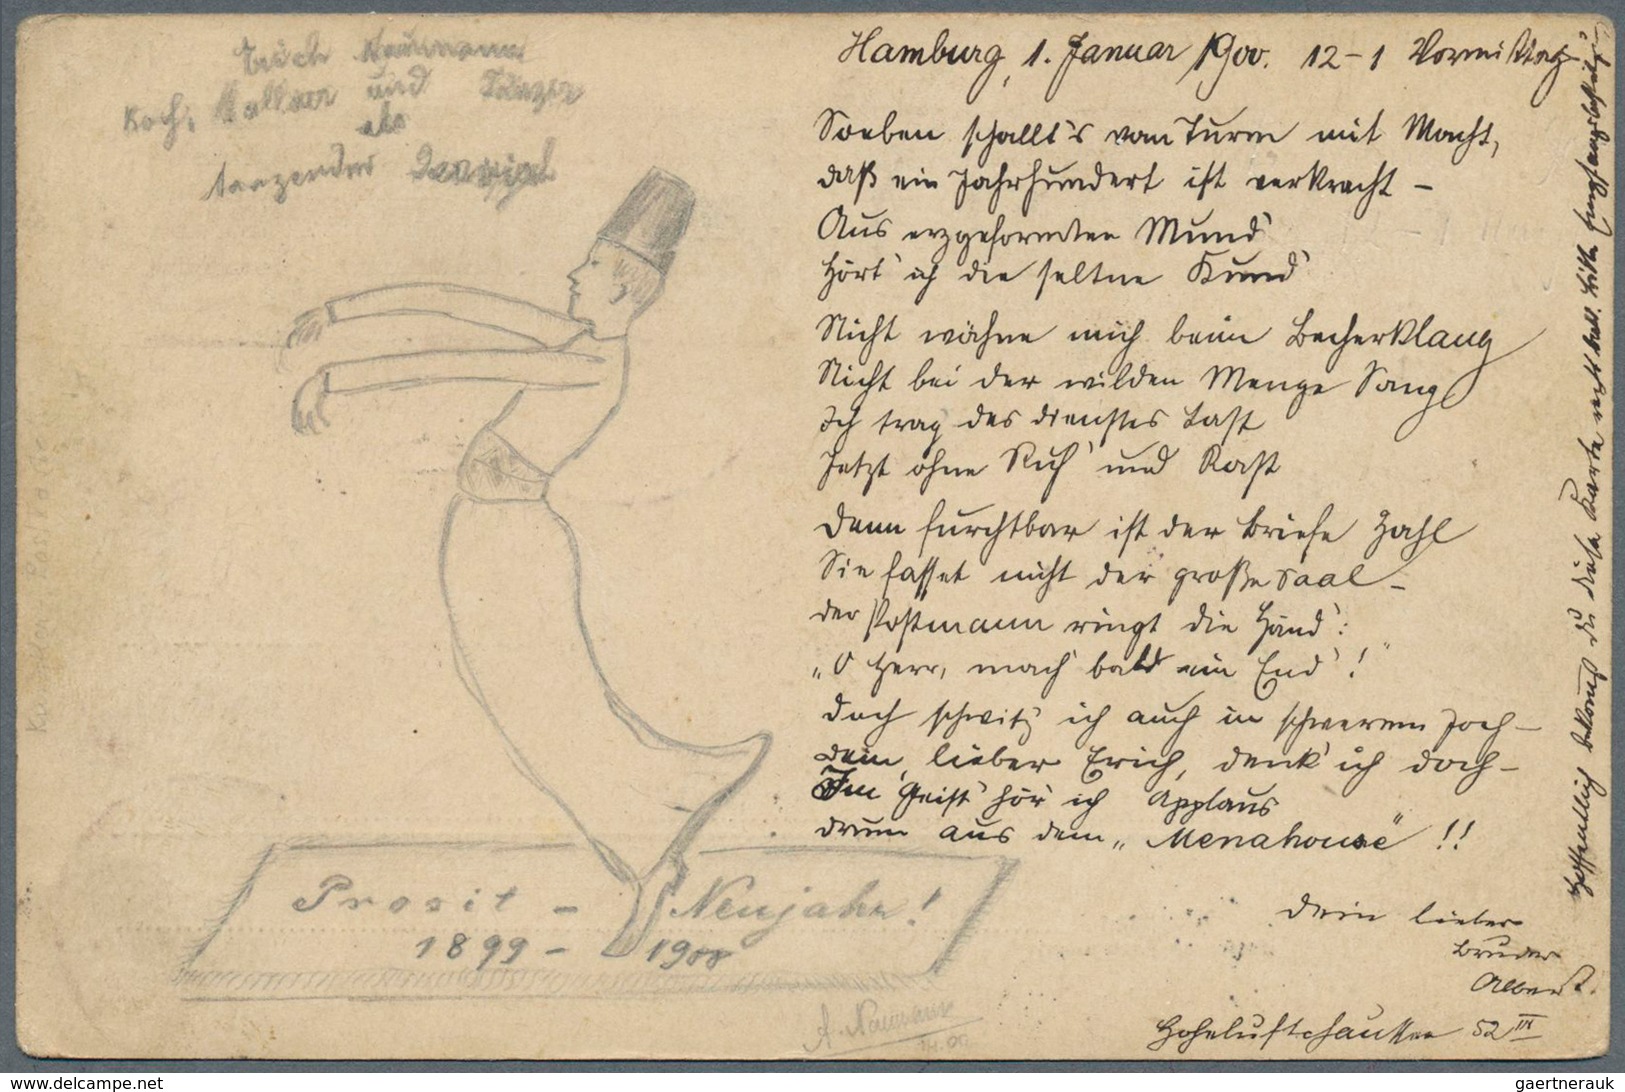 Erich Naumann
Koch, Kellner und Tänzer
als
tanzender Derwisch
Hamburg, 1. Januar 1900. 12-1 Vormittag
Soeben schallt's vom Turm mit Macht,
daß ein Jahrhundert ist verkracht –
Aus erzgeformten Mund
Hört' ich die seltne Kund'
Nicht wähne mich beim Becherklang
Nicht bei der wilden Menge Sang
Ich trag des Dienstes Last
Jetzt ohne Ruh' und Rast
Denn furchtbar ist der Briefe Zahl
Sie fasset nicht der große Saal –
der Postmann ringt die Händ':
„O Herr, mach' bald ein End'!"
Doch schwitz' ich auch in schwerem Joch –
Dein, lieber Erich, denk' ich doch –
Im Geist hör' ich Applaus
drum aus dem „Menahouse" !!
Dein lieber
Bruder
Albert.
Hoheluftchaussee 52 III
Hoffentlich bekomst du diese Karte recht bald. Bitte
Prosit – Neujahr!
1899 – 1900
A. Naumann
delcampe.net
gaertnerauk